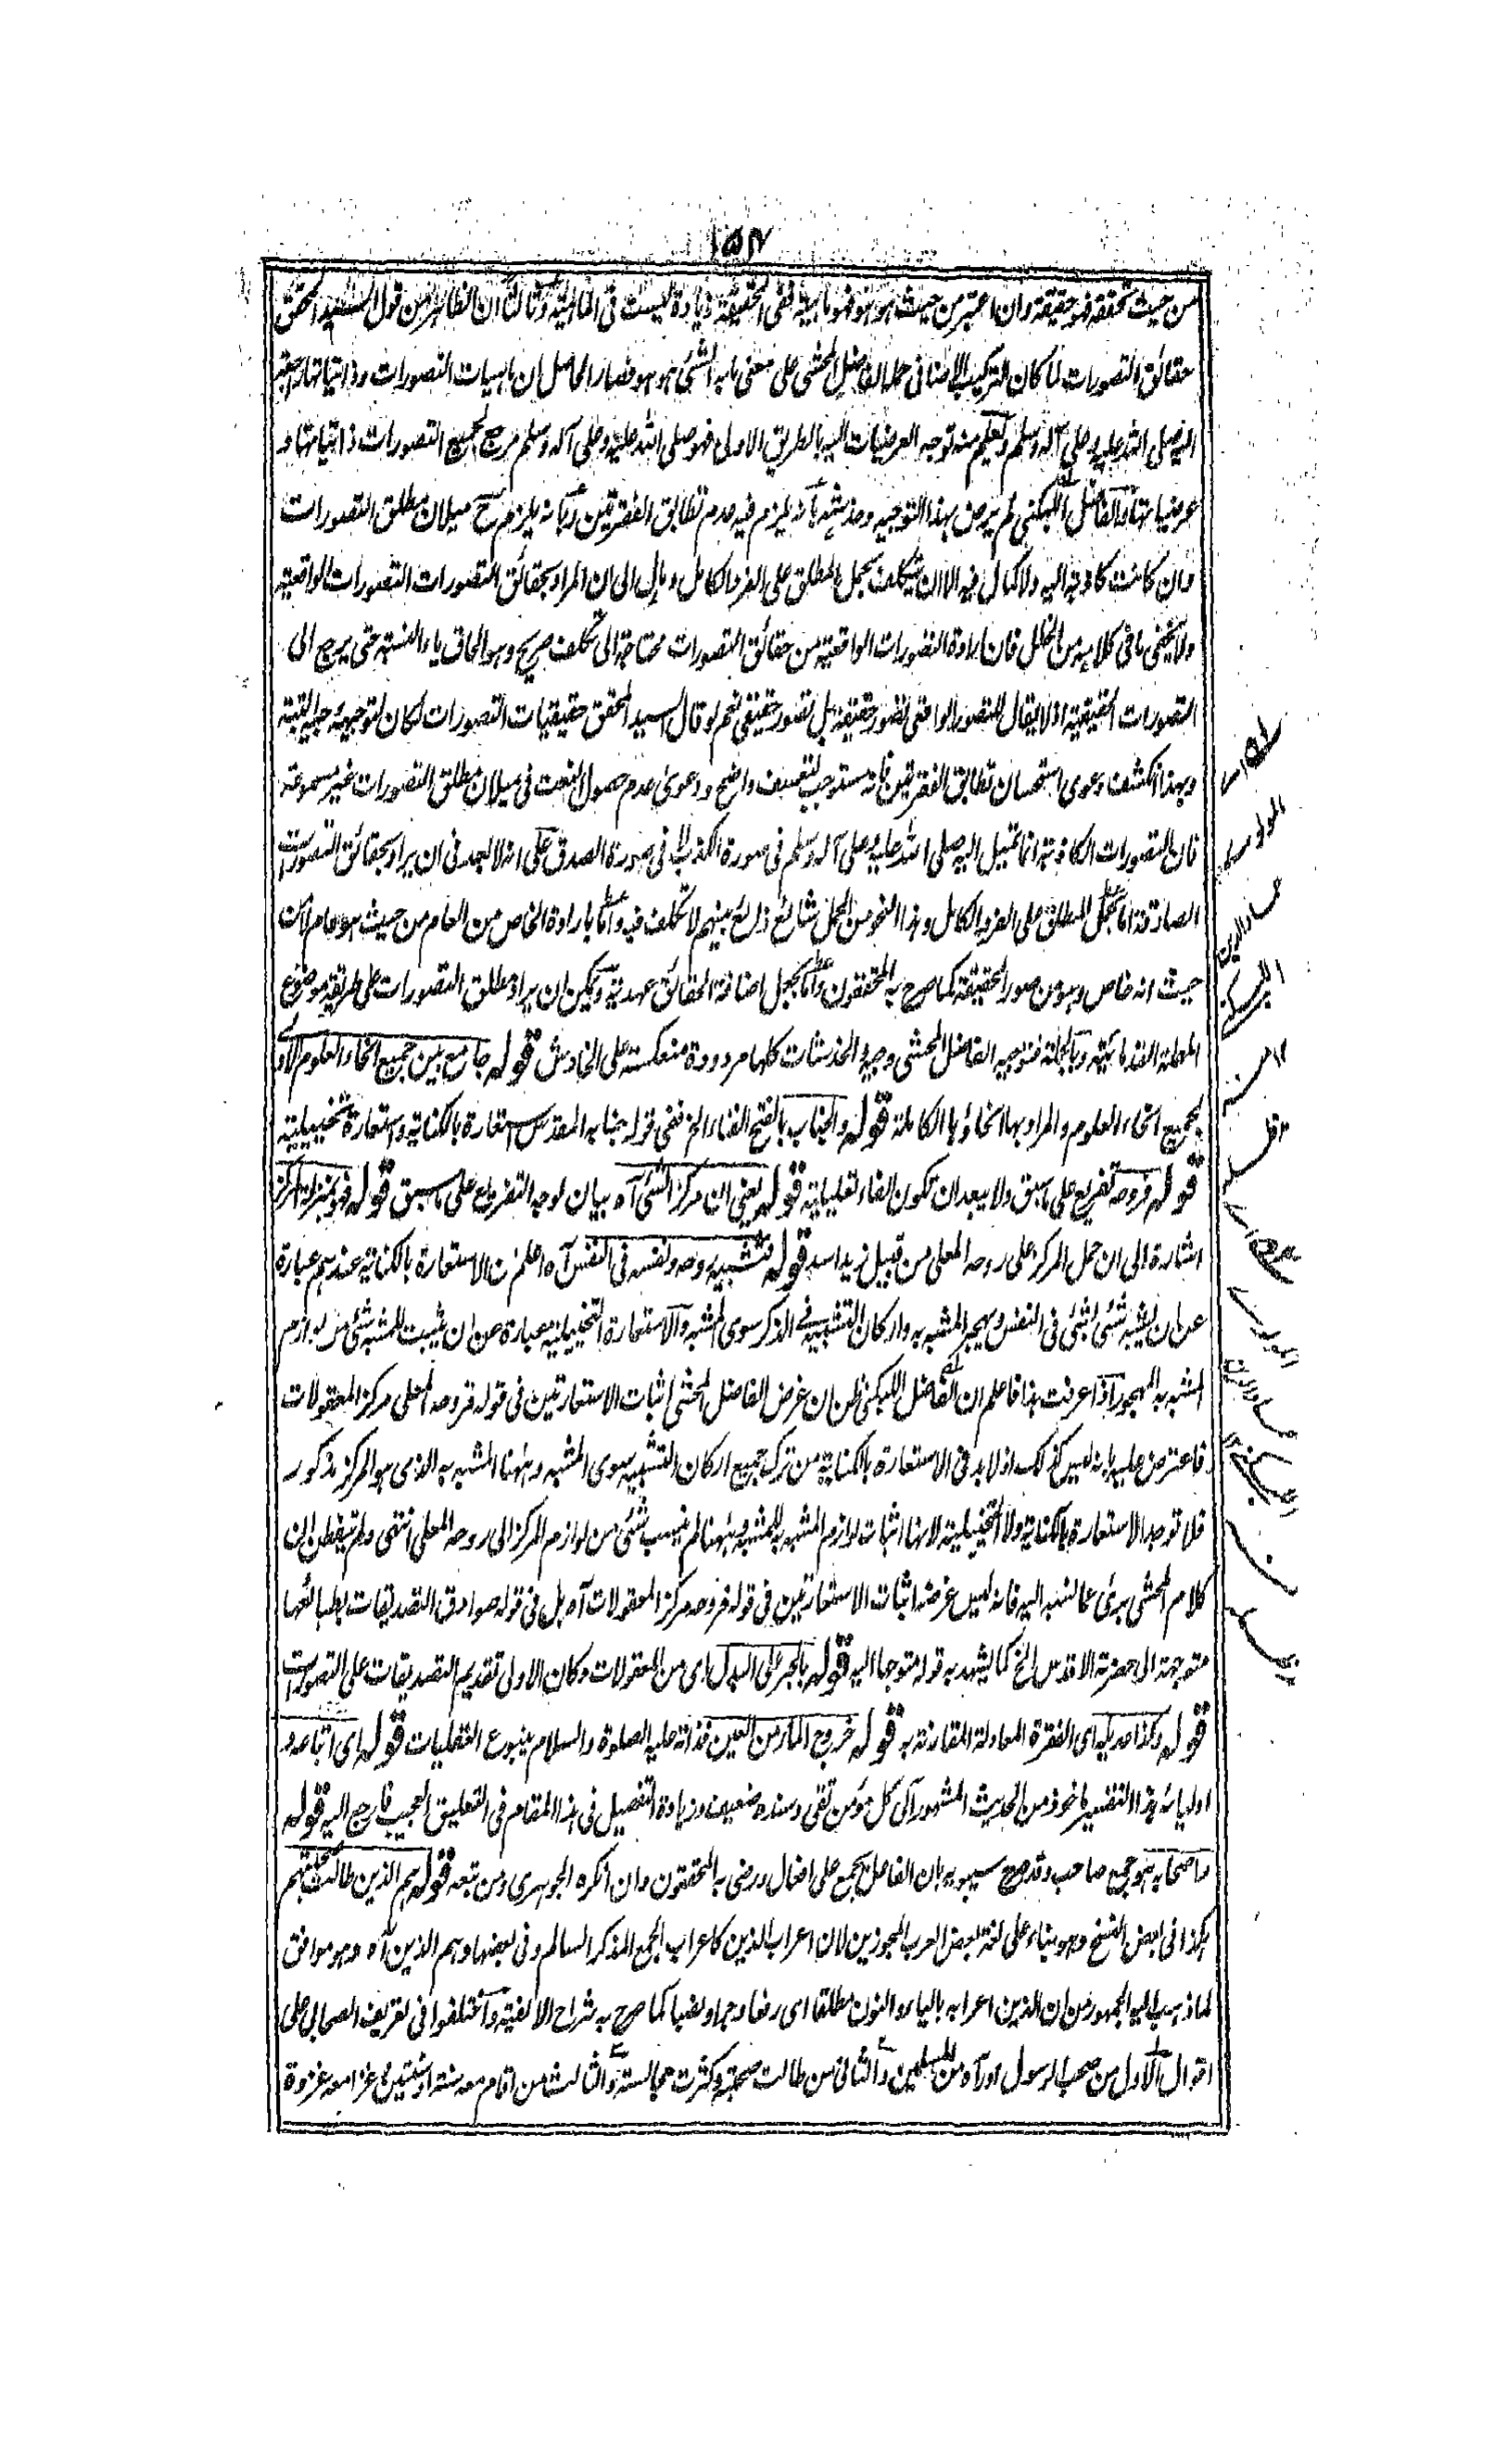 ١٥٧
من حيث تحققه فهو حقيقة وان اعتبر من حيث هو هو فهو ماهية ففى الحقيقة زيادة ليست فى الماهية وثالثا ان الظاهر من قول السيد المحقق
حقائق التصورات لما كان التركيب الاضافى حمله الفاضل المحشى على معنى ما به الشئ هو هو فصار الحاصل ان ماهيات التصورات وذاتياتها راجعة
اليه صلى الله عليه وعلى آله وسلم ويعلم منه توجه العرضيات اليه بالطريق الاولى فهو صلى الله عليه وعلى آله وسلم مرجع لجميع التصورات ذاتياتها و
عرضياتها والفاضل اللبكنى لم يرض بهذا التوجيه وخدشه بانه يلزم فيه عدم تطابق الفقرتين وبانه يلزم ح ميلان مطلق التصورات
وان كانت كاذبة اليه ولا كمال فيه الا ان يتكلف بحمل المطلق على الفرد الكامل ومال الى ان المراد بحقائق التصورات التصورات الواقعية
ولا يخفى ما فى كلاميه من الخلل فان ارادة التصورات الواقعية من حقائق التصورات محتاجة الى تكلف صريح وهو الحاق ياء النسبة حتى يرجع الى
التصورات الحقيقية اذ لا يقال للتصور الواقعى تصور حقيقة بل تصور حقيقى نعم لو قال السيد المحقق حقيقيات التصورات لكان لتوجيهه جهالبتة
وبهذا انكشف دعوى استحسان تطابق الفقرتين فانه مستوجب لتعسف واضح ودعوى عدم حصول النعت فى ميلان مطلق التصورات غير مسموعة
فان التصورات الكاذبة انما تميل اليه صلى الله عليه وعلى آله وسلم فى صورة الكذب لا فى صورة الصدق على انه لا بعد فى ان يراد بحقائق التصورات
الصادقة اما بحمل المطلق على الفرد الكامل وهذا النحو من الحمل شائع ذائع بينهم لا تكلف فيه واما بارادة الخاص من العام من حيث هو عام لا من
حيث انه خاص وهو من صور الحقيقة كما صرح به المحققون واما بجعل اضافة الحقائق عهدية ويمكن ان يراد مطلق التصورات على طريقة موضوع
المهملة القدمائية وبالجملة فتوجيه الفاضل المحشى وجيه والخدشات كلها مردودة منعكسة على الخادش قوله جامع بين جميع انحاء العلوم الاولى
لجميع انحاء العلوم والمراد بها انحاؤها الكاملة قوله والجناب بالفتح الفناء الخ ففى قوله بجنابه المقدس استعارة بالكناية واستعارة تخييلية
قوله فروحه تفريع على ما سبق ولا يبعد ان يكون الفاء تعليلية قوله يعنى ان مركز الشئ آه بيان لوجه التفريع على ما سبق قوله فهو بمنزلة المركز
اشارة الى ان حمل المركز على روحه المعلى من قبيل زيد اسد قوله فتشبيه روحه ونفسه فى النفس آه اعلم ان الاستعارة بالكناية عندهم عبارة
عن ان يشبه شئ بشئ فى النفس ويهجر المشبه به واركان التشبيه فى الذكر سوى المشبه والاستعارة التخييلية عبارة عن ان يثبت للمشبه شئ من لوازم
المشبه به المهجور اذا عرفت هذا فاعلم ان الفاضل اللبكنى ظن ان غرض الفاضل المحشى اثبات الاستعارتين فى قوله فروحه المعلى مركز المعقولات
فاعترض عليه بانه ليس كذلك اذ لا بد فى الاستعارة بالكناية من ترك جميع اركان التشبيه سوى المشبه وههنا المشبه به الذى هو المركز مذكور
فلا توجد الاستعارة بالكناية ولا التخييلية لانها اثبات لوازم المشبه به للمشبه وههنا لم ينسب شئ من لوازم المركز الى روحه المعلى انتهى ولم يتفطن ان
كلام المحشى برئ عما نسبه اليه فانه ليس غرضه اثبات الاستعارتين فى قوله فروحه مركز المعقولات آه بل فى قوله صوادق التصديقات بطبائعها
متوجهة الى حضرته الاقدس الخ كما يشهد به قوله متوجها اليه قوله بالجر على البدل اى من المعقولات وكان الاولى تقديم التصديقات على التصورات
قوله وكذا عديله اى الفقرة المعادلة المقارنة به قوله خروج الماء من العين فذاته عليه الصلوة والسلام ينبوع العقليات قوله اى اتباعه و
اوليائه هذا التفسير ماخوذ من الحديث المشهور آلى كل مؤمن تقى وسنده ضعيف وزيادة التفصيل فى هذا المقام فى التعليق العجيب فارجع اليه قوله
واصحابه هو جمع صاحب وقد صرح سيبويه بان الفاعل يجمع على افعال ورضى به المحققون وان انكره الجوهرى ومن تبعه قوله هم الذين طالت صحبتهم
هكذا فى بعض النسخ وهو بناء على لغة بعض العرب المجوزين لان اعراب الذين كاعراب الجمع المذكر السالم وفى بعضها وهم الذين آه وهو موافق
لما ذهب اليه الجمهور من ان الذين اعرابه بالياء والنون مطلقا اى رفعا وجرا ونصبا كما صرح به شراح الالفية واختلفوا فى تعريف الصحابى على
اقوال الاول من صحب الرسول او رآه من المسلمين والثانى من طالت صحبته وكثرت مجالسته والثالث من اقام معه سنة او سنتين وغزا معه غزوة